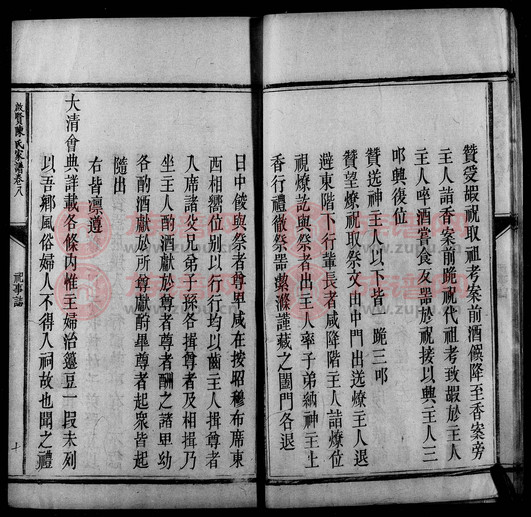 贊受嘏祝取祖考案前酒饌降至香案旁
主人詣香案前跪祝代祖考致嘏於主人
主人啐酒嘗食反器於祝接以興主人三
叩興復位
贊送神主人以下皆 跪三叩
贊望燎祝取祭文由中門出送燎主人退
避東階下行輩長者咸降階主人詣燎位
視燎訖與祭者出主人率子弟納神主上
香行禮徹祭器潔滌謹藏之闔門各退
日中餕與祭者尊卑咸在按昭穆布席東
西相嚮位別以行行均以齒主人揖尊者
入席諸父兄弟子孫各揖尊者及相揖乃
坐主人酌酒獻於尊者尊者酬之諸卑幼
各酌酒獻於所尊獻酧畢尊者起衆皆起
隨出
右皆凜遵
大清會典詳載各條內惟主婦治籩豆一段未列
以吾鄉風俗婦人不得入祠故也聞之禮
陳氏家譜卷八
祀事誌
十